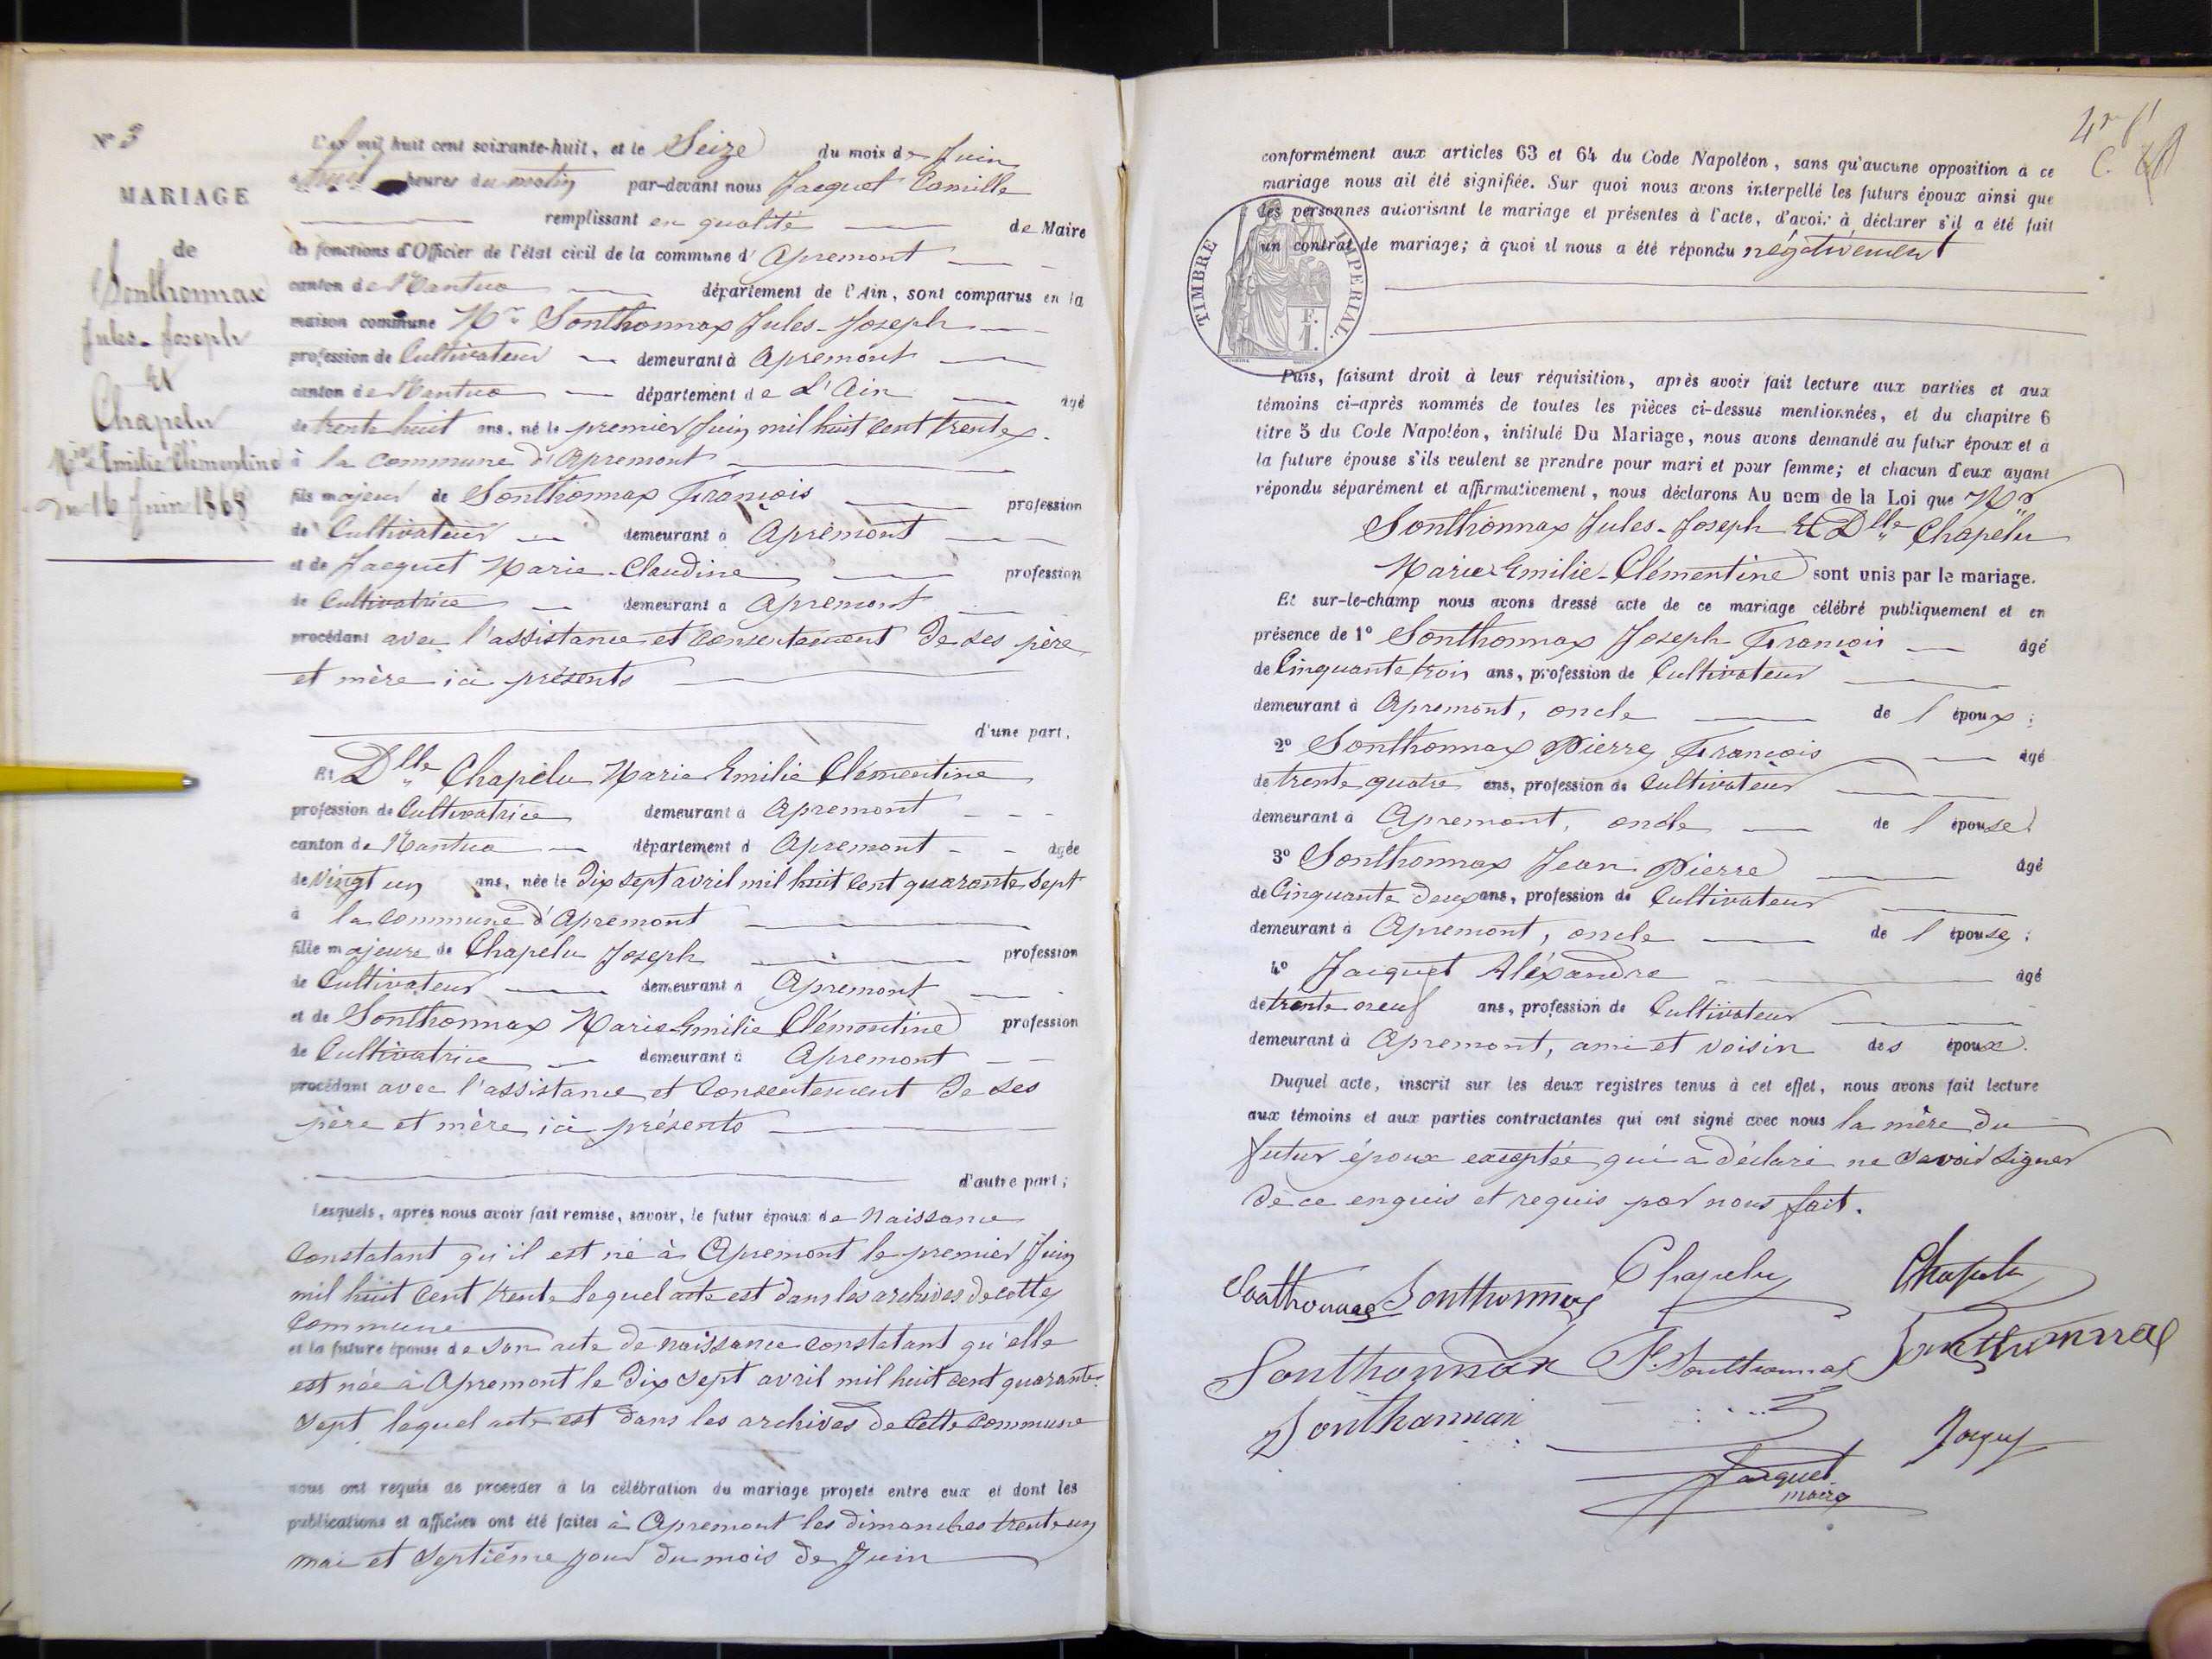 N° 3
MARIAGE
de
Sonthonnax
Jules-Joseph
et
Chapelu
Mie Emilie Clémentine
Du 16 Juin 1868
L'an mil huit cent soixante-huit, et le Seize du mois de Juin
à huit heures du matin par-devant nous Jacquet Camille
remplissant en qualité de Maire
les fonctions d'Officier de l'état civil de la commune d'Apremont
canton de Nantua département de l'Ain, sont comparus en la
maison commune Mr Sonthonnax Jules-Joseph
profession de Cultivateur demeurant à Apremont
canton de Nantua département de L'Ain âgé
de trente huit ans, né le premier Juin mil huit cent trente
à la commune d'Apremont
fils majeur de Sonthonnax François profession
de Cultivateur demeurant à Apremont
et de Jacquet Marie-Claudine profession
de Cultivatrice demeurant à Apremont
procédant avec l'assistance et consentement de ses père
et mère ici présents
d'une part,
Et Dlle Chapelu Marie Emilie Clémentine
profession de Cultivatrice demeurant à Apremont
canton de Nantua département d Apremont âgée
de vingt un ans, née le dix sept avril mil huit cent quarante sept
à la commune d'Apremont
fille majeure de Chapelu Joseph profession
de Cultivateur demeurant à Apremont
et de Sonthonnax Marie Emilie Clémentine profession
de Cultivatrice demeurant à Apremont
procédant avec l'assistance et consentement de ses
père et mère ici présents
d'autre part;
Lesquels, après nous avoir fait remise, savoir, le futur époux de Naissance
constatant qu'il est né à Apremont le premier Juin
mil huit cent trente lequel acte est dans les archives de cette
commune
et la future épouse de son acte de naissance constatant qu'elle
est née à Apremont le dix sept avril mil huit cent quarante
sept lequel acte est dans les archives de cette commune
nous ont requis de procéder à la célébration du mariage projeté entre eux et dont les
publications et affiches ont été faites à Apremont les dimanches trente un
mai et septième jour du mois de Juin
conformément aux articles 63 et 64 du Code Napoléon, sans qu'aucune opposition à ce
mariage nous ait été signifiée. Sur quoi nous avons interpellé les futurs époux ainsi que
les personnes autorisant le mariage et présentes à l'acte, d'avoir à déclarer s'il a été fait
un contrat de mariage; à quoi il nous a été répondu négativement
TIMBRE IMPERIAL.
F.
1.
Puis, faisant droit à leur réquisition, après avoir fait lecture aux parties et aux
témoins ci-après nommés de toutes les pièces ci-dessus mentionnées, et du chapitre 6
titre 5 du Code Napoléon, intitulé Du Mariage, nous avons demandé au futur époux et à
la future épouse s'ils veulent se prendre pour mari et pour femme; et chacun d'eux ayant
répondu séparément et affirmativement, nous déclarons Au nom de la Loi que Mr
Sonthonnax Jules-Joseph Et Dlle Chapelu
Marie-Emilie-Clémentine sont unis par le mariage.
Et sur-le-champ nous avons dressé acte de ce mariage célébré publiquement et en
présence de 1° Sonthonnax Joseph François âgé
de Cinquante trois ans, profession de Cultivateur
demeurant à Apremont, oncle de l époux;
2° Sonthonnax Pierre François âgé
de trente quatre ans, profession de Cultivateur
demeurant à Apremont, oncle de l épouse
3° Sonthonnax Jean Pierre âgé
de Cinquante deux ans, profession de Cultivateur
demeurant à Apremont, oncle de l épouse;
4° Jacquet Aléxandre âgé
de trente neuf ans, profession de Cultivateur
demeurant à Apremont, ami et voisin des époux.
Duquel acte, inscrit sur les deux registres tenus à cet effet, nous avons fait lecture
aux témoins et aux parties contractantes qui ont signé avec nous la mère du
futur époux exceptée qui à déclaré ne savoir signer
de ce enquis et requis par nous fait.
Sonthonnax Sonthonnax Chapelu Chapelu
Sonthonnax F. Sonthonnax Sonthonnax
Sonthonnax
Jacquet
maire